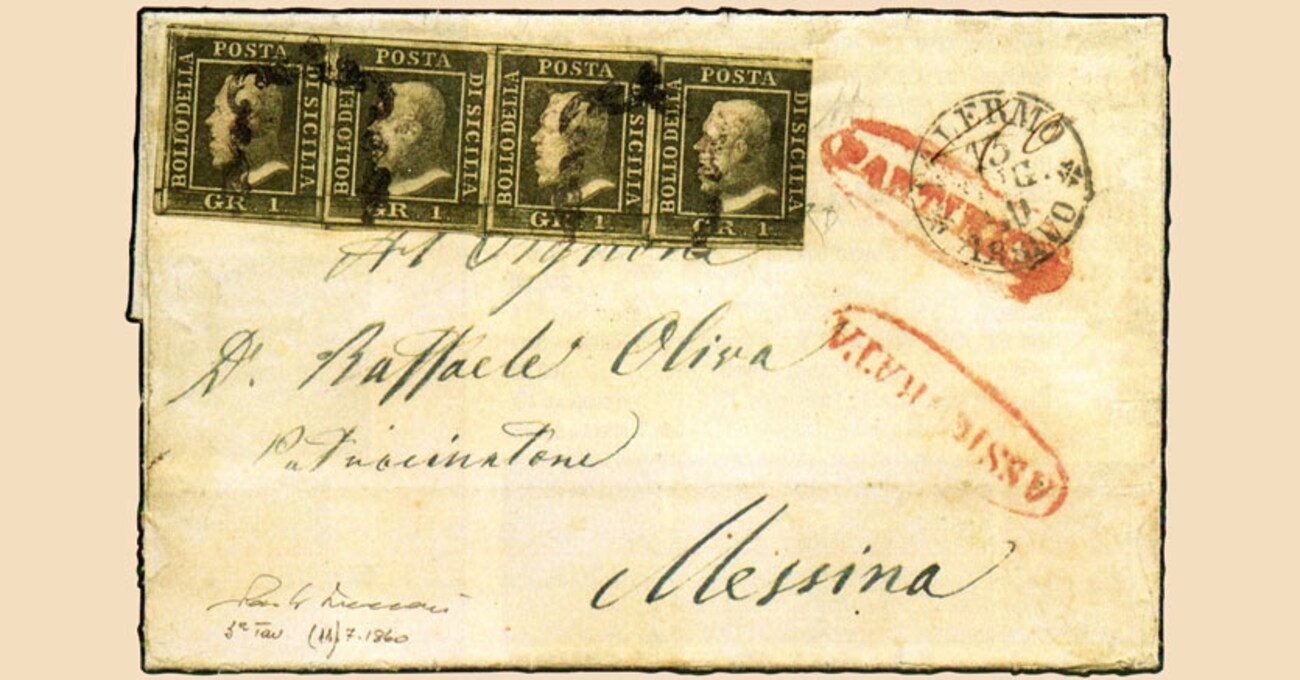 POSTA POSTA POSTA POSTA
BOLLO DELLA DI SICILIA BOLLO DELLA DI SICILIA BOLLO DELLA DI SICILIA BOLLO DELLA DI SICILIA
GR. 1. GR. 1. GR. 1. GR. 1.
LERMO
ARRIVO
Al Signore
Dr. Raffaele Oliva
Patrocinatore
ASSICURATA
Messina
3ª Tav (11) 7.1860